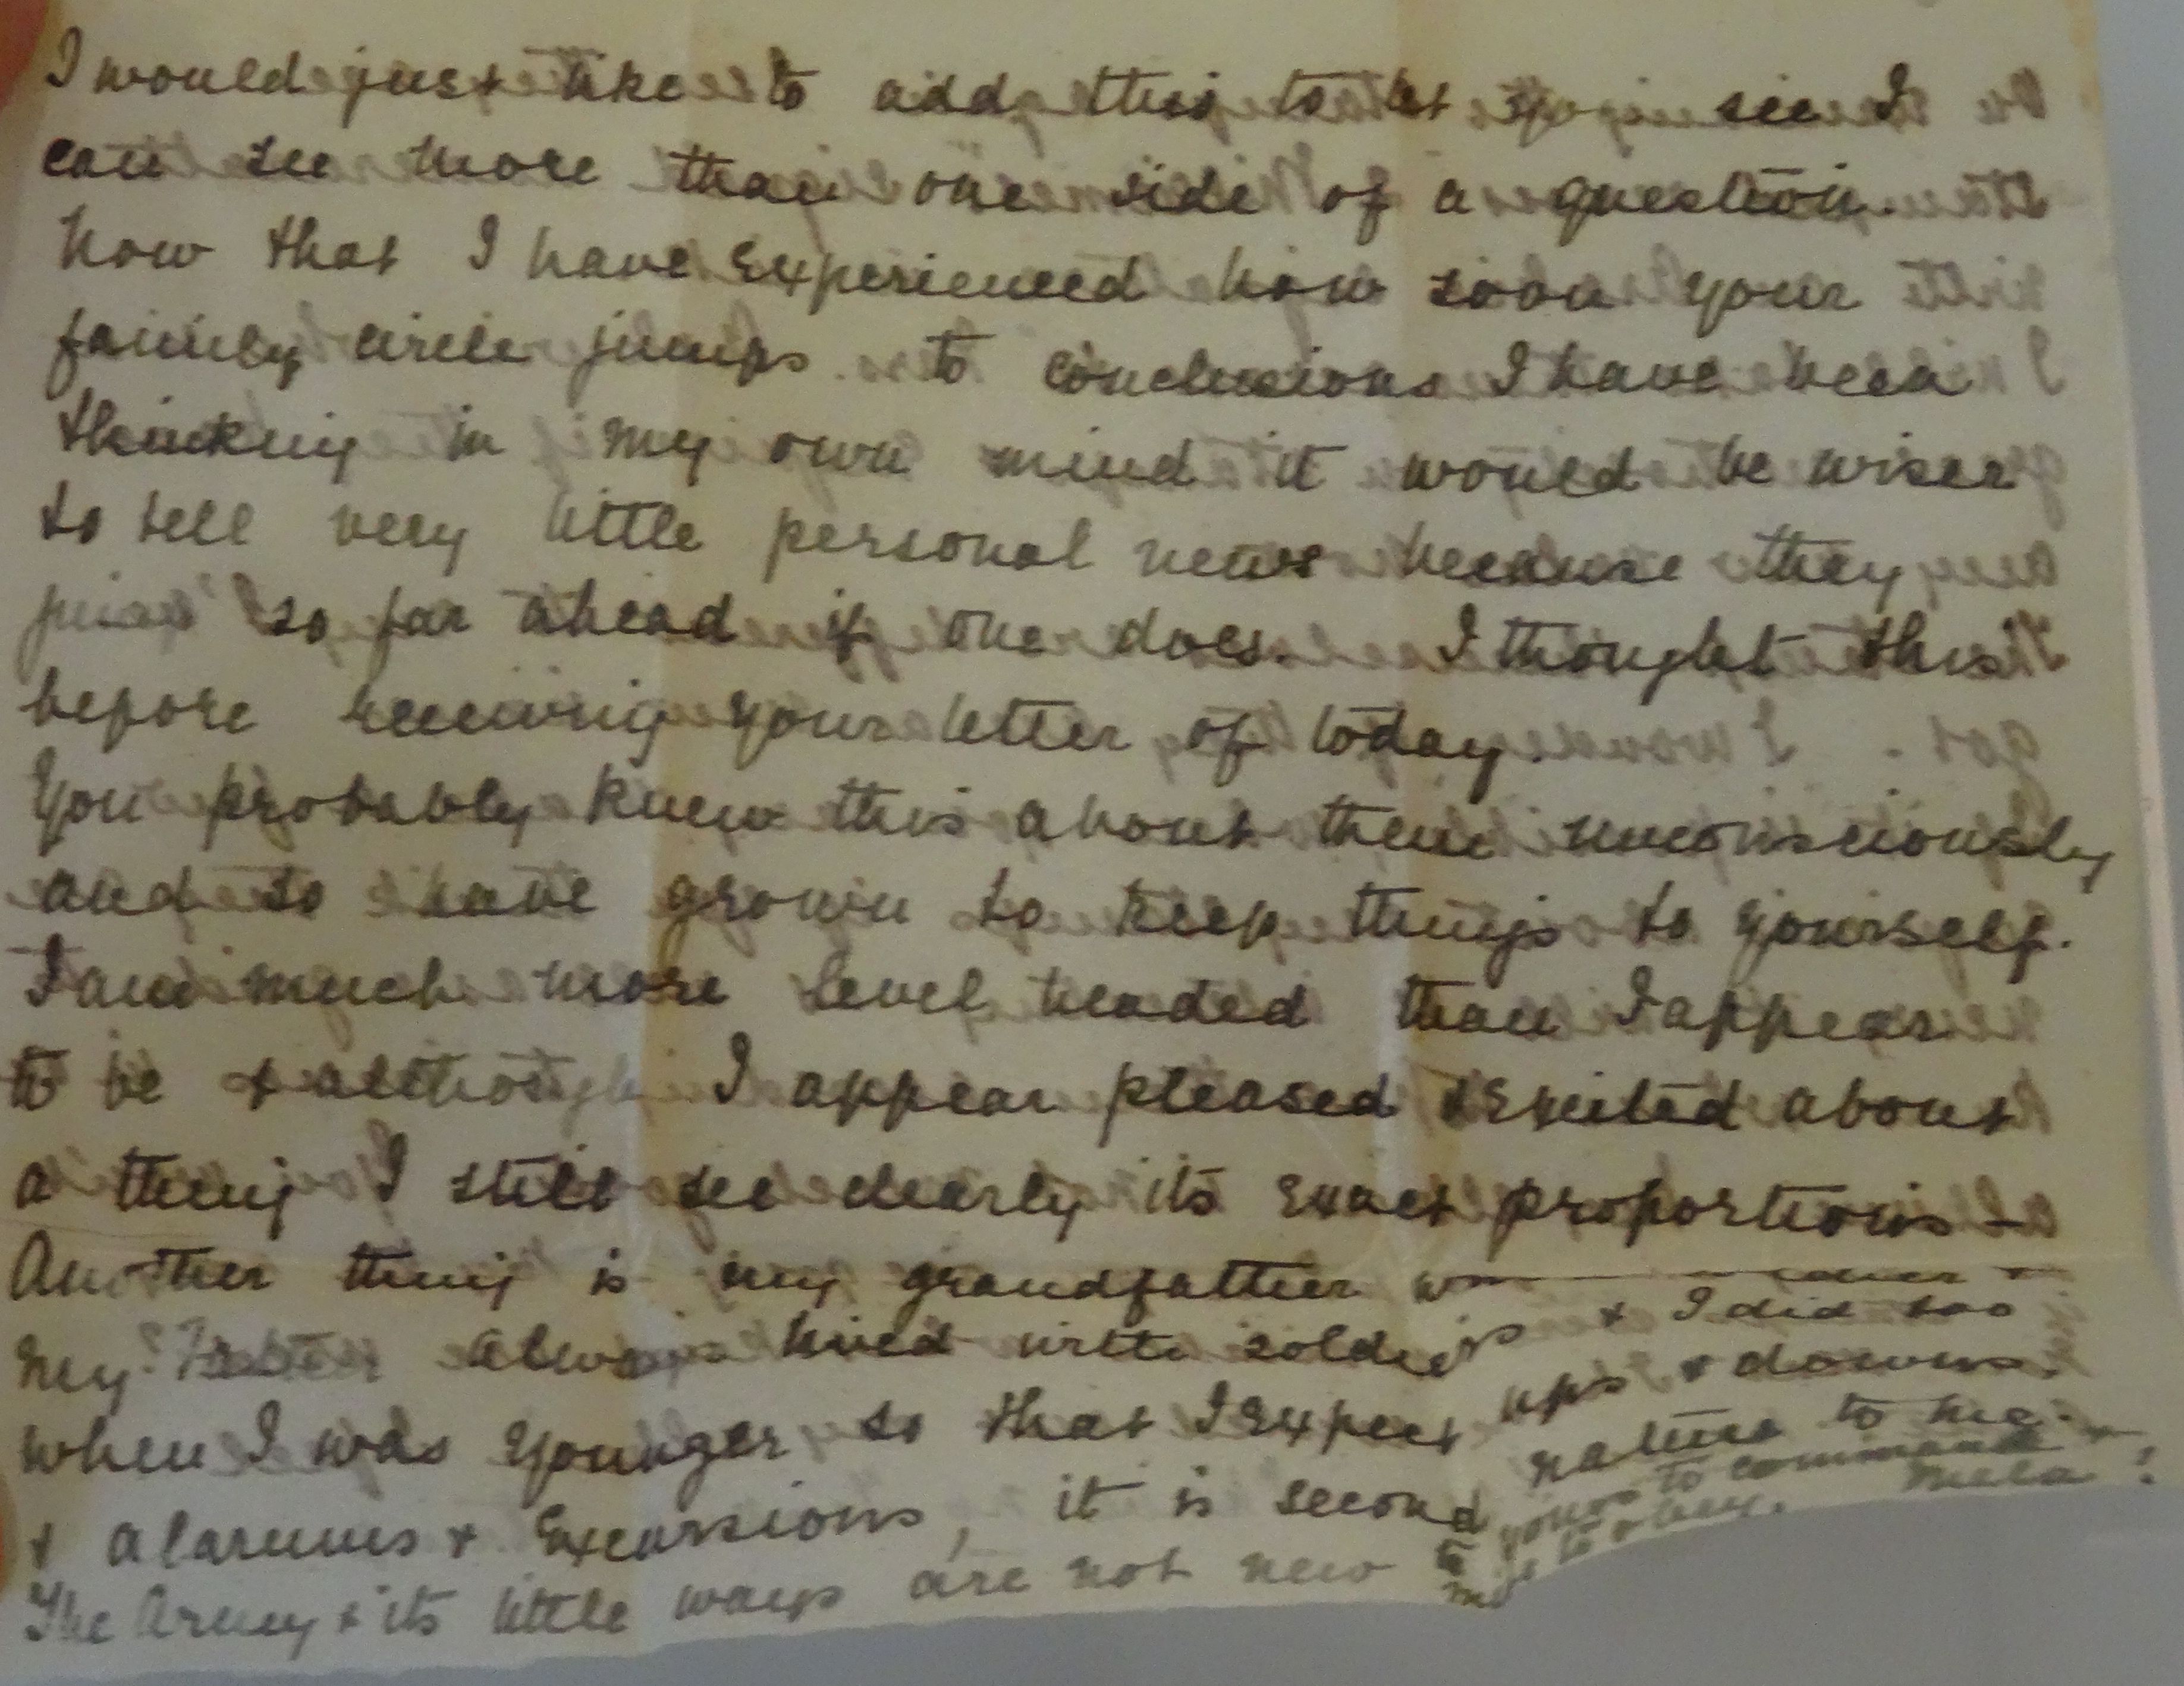 I would just like to add this to let you see I
can see more than one side of a question.
Now that I have experienced how soon your
family circle jumps to conclusions I have been
thinking in my own mind it would be wiser
to tell very little personal news because they
so far ahead if one does. I thought this
before receiving your letter of today.
You probably knew this about them unconsciously
and so have grown to keep things to yourself.
I am much more level headed than I appear
to be & although I appear pleased & excited about
a thing I still see clearly its exact proportions —
Another thing is my grandfather
my always lived with soldiers & I did too
when I was younger so that I expect ups & downs.
& alarums & excursions, it is second nature to me.
The Army & its little ways are not new to
yours to command
to obey.